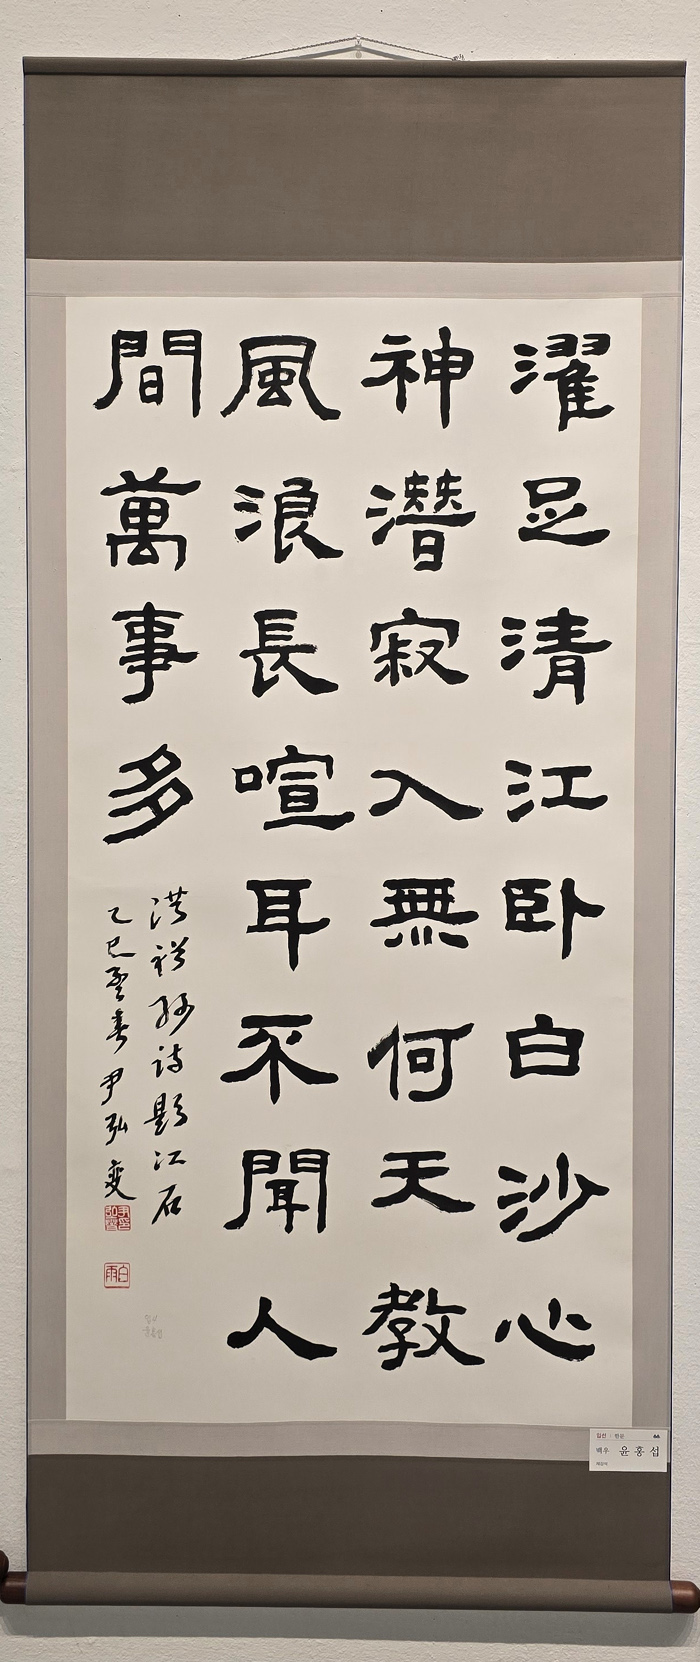 濯足清江卧白沙心
神潛寂入無何天教
風浪長喧耳不聞人
間萬事多
洪裕孫詩題江石
乙巳 春 尹弘燮
白雨
입선 : 한문
배우 윤홍섭